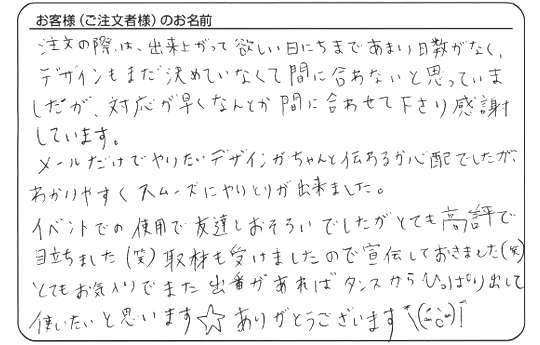 お客様（ご注文者様）のお名前
注文の際は、出来上がって欲しい日にちまであまり日数がなく、
デザインもまだ決めていなくて間に合わないと思っていま
したが、対応が早くなんとか間に合わせて下さり感謝
しています。
メールだけでやりたいデザインがちゃんと伝わるか心配でしたが、
わかりやすくスムーズにやりとりが出来ました。
イベントでの使用で友達とおそろいでしたがとても高評で
目立ちました(笑)取材も受けましたので宣伝しておきました(笑)
とてもお気に入りでまた出番があればタンスからひっぱり出して
使いたいと思います☆ありがとうございます